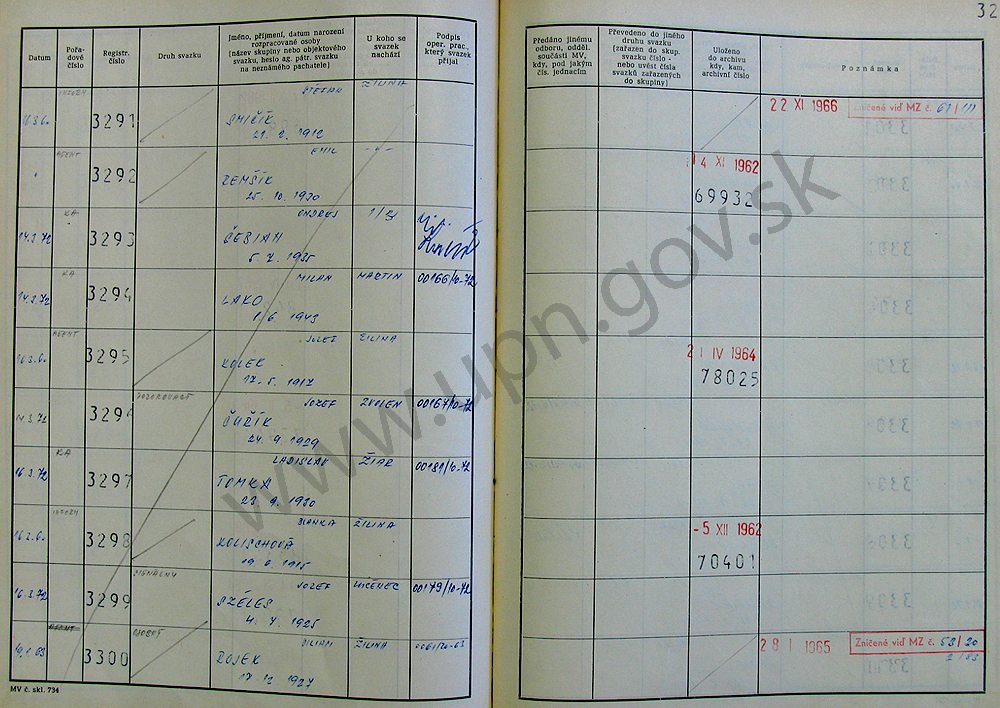 32
Datum
Pořa-
dové
číslo
Registr.
číslo
Druh svazku
Jméno, příjmení, datum narození
rozpracované osoby
[název skupiny nebo objektového
svazku, heslo ag. pátr. svazku
na neznámého pachatele]
U koho se
svazek
nachází
Podpis
oper. prac.,
který svazek
přijal
Předáno jinému
odboru, odděl.
součásti MV,
kdy, pod jakým
čís. jednacím
Převedeno do jiného
druhu svazku
[zařazen do skup.
svazku číslo -
nebo uvést čísla
svazků zařazených
do skupiny]
Uloženo
do archivu
kdy, kam,
archivní číslo
Poznámka
3291
ŠTEFAN
ŽILINA
SMIČÍK
21. 2. 1912
22 XI 1966
Zničené viď MZ č. 61/111
AGENT
3292
EMIL
-"-
ZEMŠÍK
25. 10. 1930
14 XI 1962
69932
14.3.72
KA
3293
ONDREJ
ČEŠIAH
5. 7. 1935
14.3.72
KA
3294
MILAN
MARTIN
00166/10-72
LAKO
1. 6. 1943
AGENT
3295
JOZEF
ŽILINA
KOLEK
17. 5. 1917
21 IV 1964
78025
14.3.72
3296
POZOROVACÍ
JOZEF
ZVOLEN
00167/10-72
ČUŘÍK
24. 9. 1929
16.3.72
KA
3297
LADISLAV
ŽIAR
00181/10-72
TOMKA
23. 9. 1930
3298
BLANKA
ŽILINA
KOLISCHOVÁ
-5 XII 1962
70401
16.3.72
3299
SIGNÁLNY
JOZEF
LUČENEC
00179/10-72
SZÉLES
4. 4. 1925
AGENT
3300
OSOBNÝ
VILIAM
ŽILINA
ROJEK
17. 12. 1927
28 I 1965
Zničené viď MZ č. 53/20
2/83
MV č. skl. 734
www.upn.gov.sk